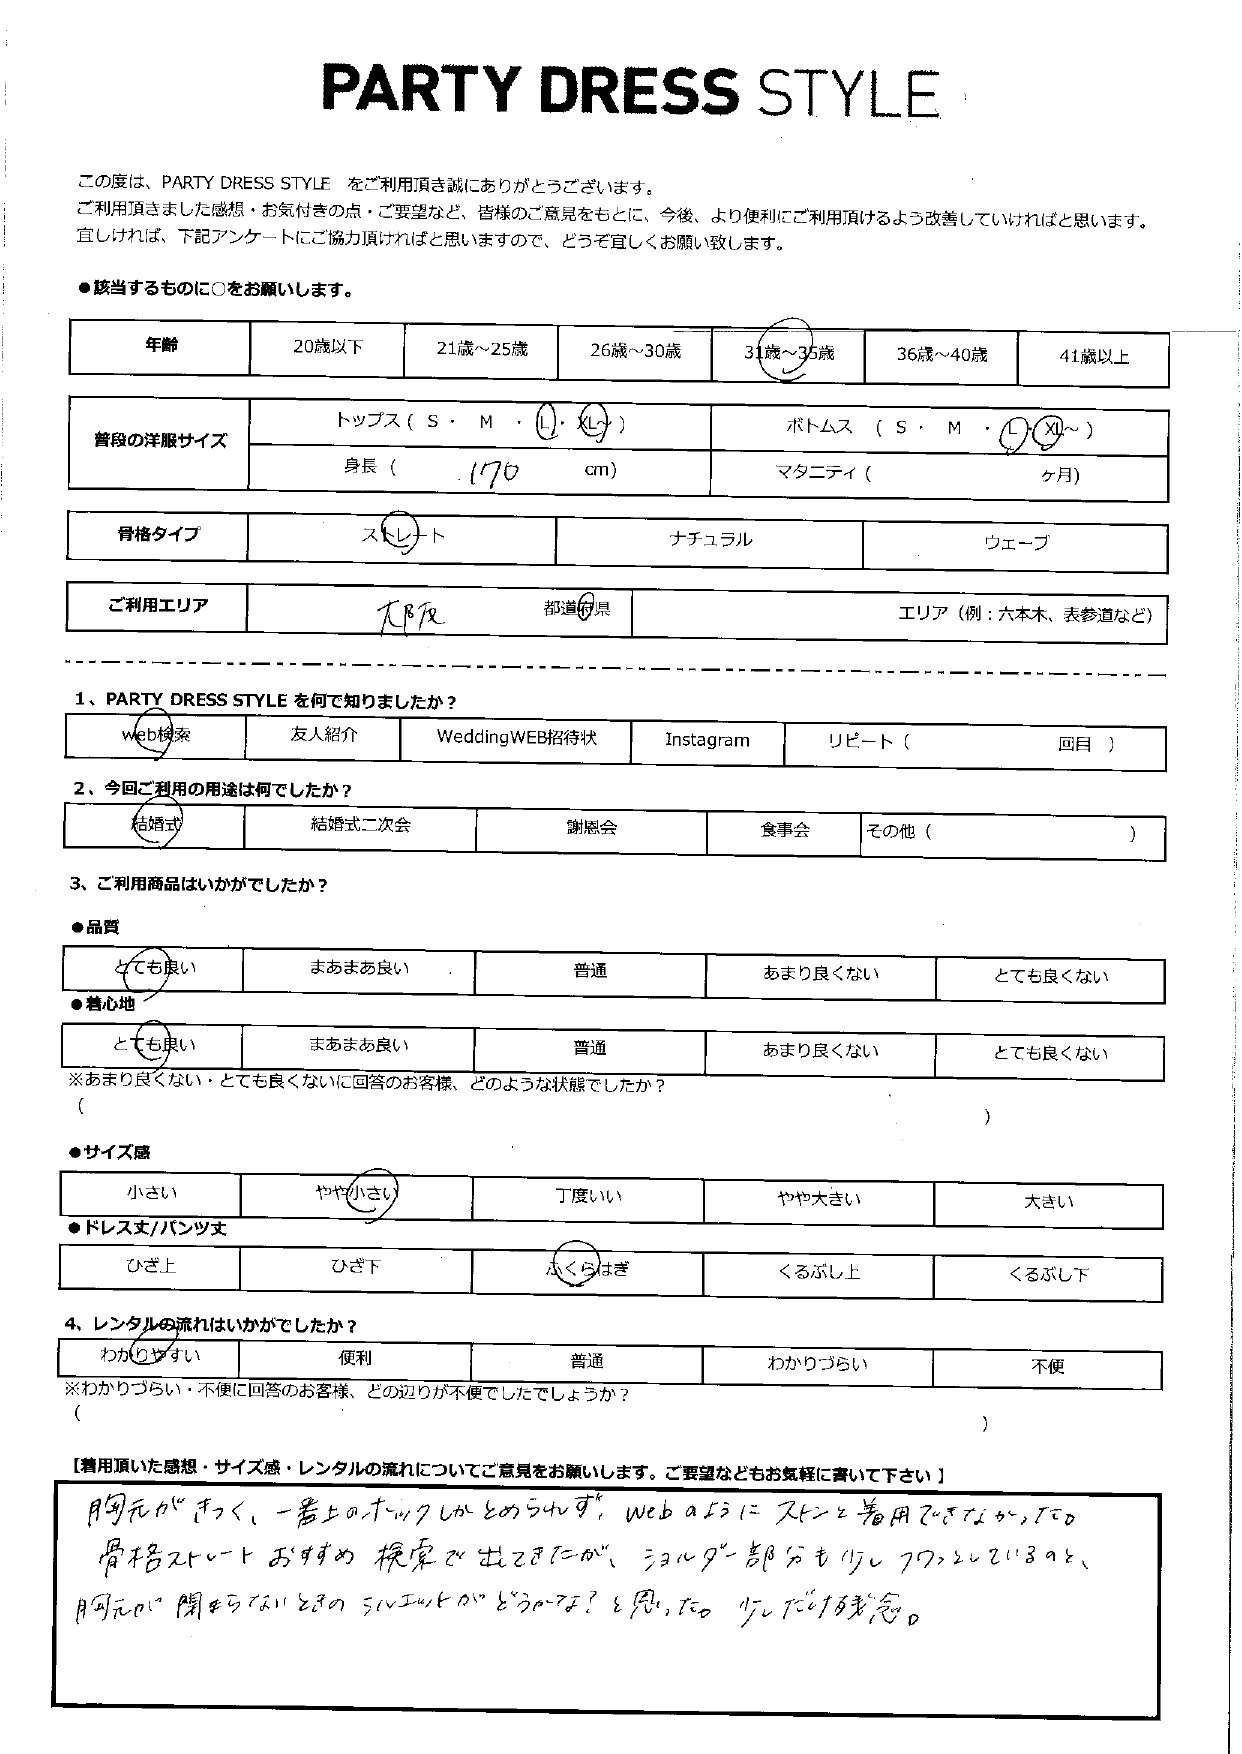 PARTY DRESS STYLE
この度は、PARTY DRESS STYLE をご利用頂き誠にありがとうございます。
ご利用頂きました感想・お気付きの点・ご要望など、皆様のご意見をもとに、今後、より便利にご利用頂けるよう改善していければと思います。
宜しければ、下記アンケートにご協力頂ければと思いますので、どうぞ宜しくお願い致します。
●該当するものに○をお願いします。
年齢 20歳以下 21歳～25歳 26歳～30歳 31歳～35歳 36歳～40歳 41歳以上
普段の洋服サイズ トップス（ S ・ M ・ L ・ XL～ ） ボトムス （ S ・ M ・ L ・ XL～ ）
身長（ 170 cm） マタニティ（ ケ月）
骨格タイプ ストレート ナチュラル ウェーブ
ご利用エリア 大阪 都道府県 エリア（例：六本木、表参道など）
1、PARTY DRESS STYLE を何で知りましたか？
web検索 友人紹介 WeddingWEB招待状 Instagram リピート（ 回目 ）
2、今回ご利用の用途は何でしたか？
結婚式 結婚式二次会 謝恩会 食事会 その他（ ）
3、ご利用商品はいかがでしたか？
●品質
とても良い まあまあ良い 普通 あまり良くない とても良くない
●着心地
とても良い まあまあ良い 普通 あまり良くない とても良くない
※あまり良くない・とても良くないに回答のお客様、どのような状態でしたか？
（ ）
●サイズ感
小さい やや小さい 丁度いい やや大きい 大きい
●ドレス丈/パンツ丈
ひざ上 ひざ下 ふくらはぎ くるぶし上 くるぶし下
4、レンタルの流れはいかがでしたか？
わかりやすい 便利 普通 わかりづらい 不便
※わかりづらい・不便に回答のお客様、どの辺りが不便でしたでしょうか？
（ ）
【着用頂いた感想・サイズ感・レンタルの流れについてご意見をお願いします。ご要望などもお気軽に書いて下さい 】
胸元がきつく、一番上のホックしかとめられず、webのようにストンと着用できなかった。
骨格ストレートおすすめ検索で出てきたが、ショルダー部分も少しフワッとしているのと、
胸元が閉まらないときのシルエットがどうかな？と思った。少しだけ残念。